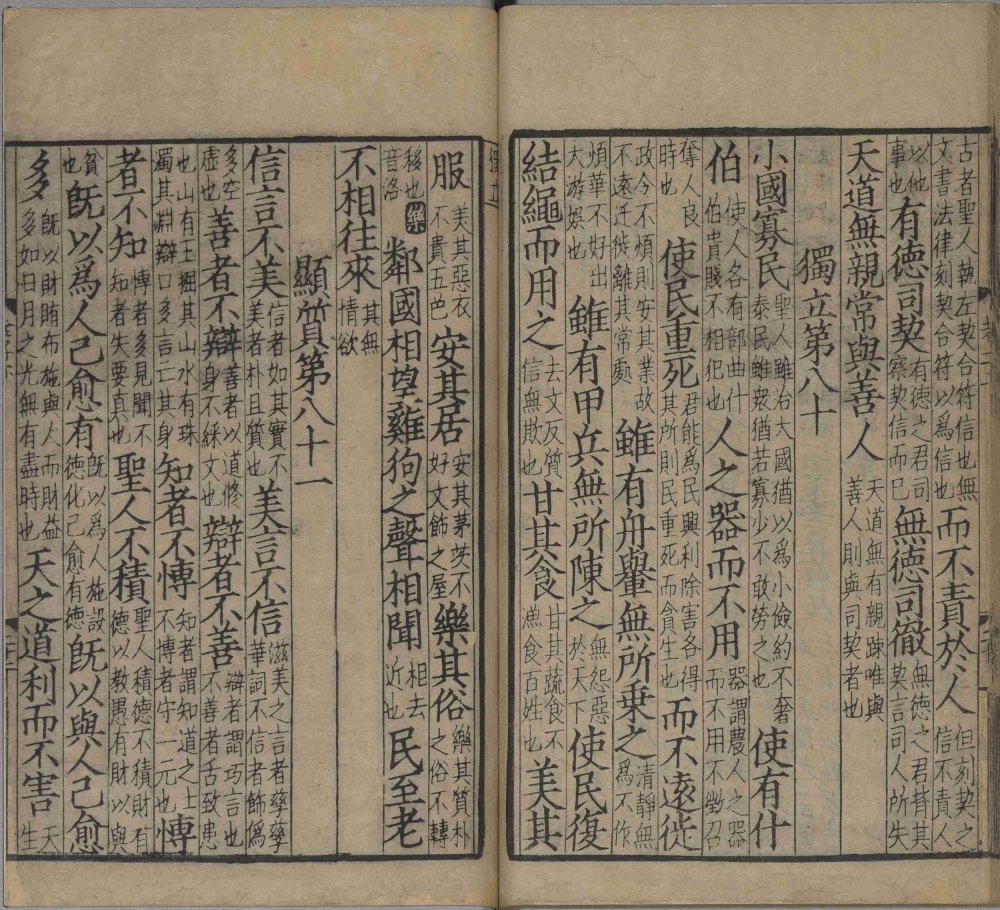 古者聖人執左契合符信也無文書法律刻契合符以爲信也而不責於人但刻契之信不責人
以他事也有德司契有德之君司察契信而已無德司徹無德之君背其契言司人所失
天道無親常與善人天道無有親踈唯與善人則與司契者也
獨立第八十
小國寡民聖人雖治大國猶以爲小儉約不奢泰民雖衆猶若寡少不敢勞之也使有什
伯使人各有部曲什伯貴賤不相犯也人之器而不用器謂農人之器而不用不徵召
奪人良時也使民重死君能爲民興利除害各得其所則民重死而貪生也而不遠徙
政令不煩則安其業故不遠迁徙離其常處雖有舟轝無所乗之清靜無爲不作
煩華不好出大游娯也雖有甲兵無所陳之無怨惡於天下使民復
結繩而用之去文反質信無欺也甘其食甘其蔬食不漁食百姓也美其
獨立
服美其惡衣不貴五色安其居安其茅茨不好文飾之屋樂其俗樂其質朴之俗不轉
移也樂音洛鄰國相望雞狗之聲相聞相去近也民至老
不相往來其無情欲
顯質第八十一
信言不美信者如其實不美者朴且質也美言不信滋美之言者孳孳華詞不信者飾僞
多空虚也善者不辯善者以道修身不綵文也辯者不善辯者謂巧言也不善者舌致患
也山有玉掘其山水有珠濁其淵辯口多言亡其身知者不博知者謂知道之士不博者守一元也博
者不知博者多見聞不知者失要真也聖人不積聖人積德不積財有德以教愚有財以與
貧也旣以爲人己愈有旣以爲人施設德化己愈有德旣以與人己愈
多旣以財賄布施與人而財益多如日月之光無有盡時也天之道利而不害天生